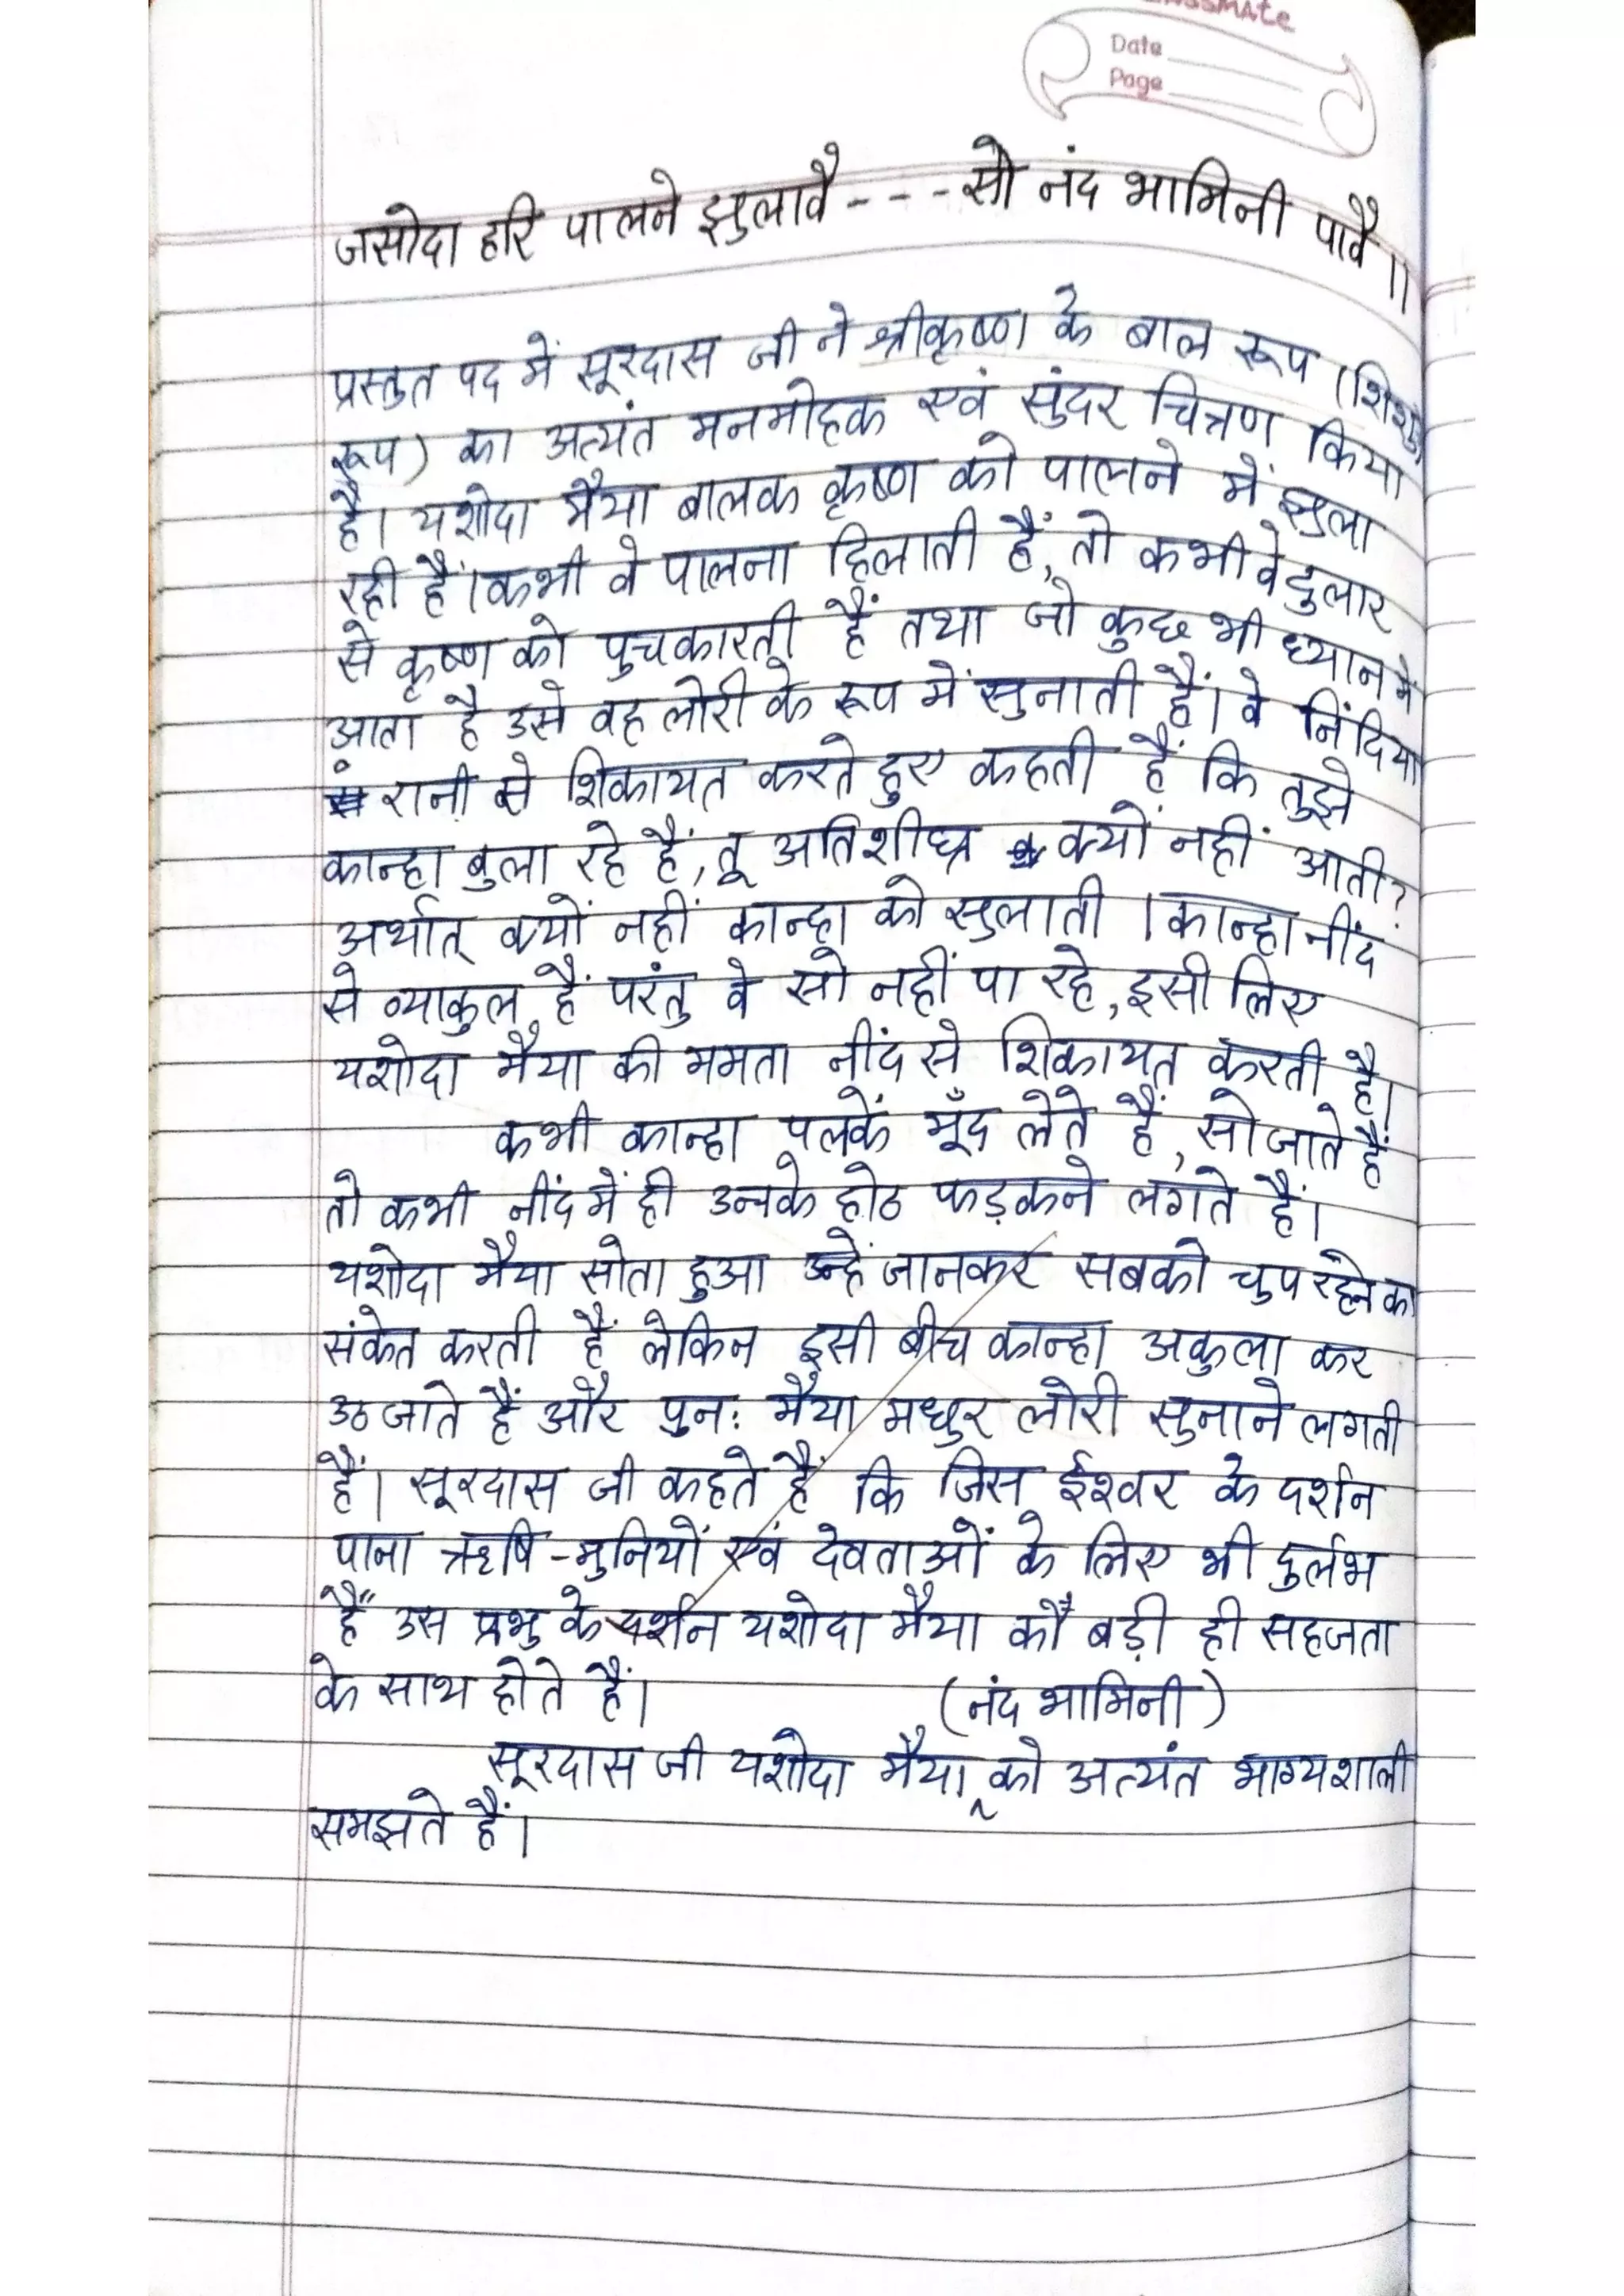 classmate
Date
Page
जसोदा हरि पालने झुलावै - - - सो नंद भामिनी पावै ॥
प्रस्तुत पद में सूरदास जी ने श्रीकृष्ण के बाल रूप (शिशु
रूप) का अत्यंत मनमोहक एवं सुंदर चित्रण किया
है। यशोदा मैया बालक कृष्ण को पालने में झुला
रही हैं। कभी वे पालना हिलाती हैं, तो कभी वे दुलार
से कृष्ण को पुचकारती हैं तथा जो कुछ भी ध्यान में
आता है उसे वह लोरी के रूप में सुनाती हैं। वे निंदिया
रानी से शिकायत करते हुए कहती हैं कि तुझे
कान्हा बुला रहे हैं, तू अतिशीघ्र क्यों नहीं आती?
अर्थात् क्यों नहीं कान्हा को सुलाती । कान्हा नींद
से व्याकुल हैं परंतु वे सो नहीं पा रहे, इसी लिए
यशोदा मैया की ममता नींद से शिकायत करती है।
कभी कान्हा पलकें मूँद लेते हैं, सो जाते हैं
तो कभी नींद में ही उनके होठ फड़कने लगते हैं।
यशोदा मैया सोता हुआ उन्हें जानकर सबको चुप रहने का
संकेत करती हैं लेकिन इसी बीच कान्हा अकुला कर
उठ जाते हैं और पुनः मैया मधुर लोरी सुनाने लगती
हैं। सूरदास जी कहते हैं कि जिस ईश्वर के दर्शन
पाना ऋषि-मुनियों एवं देवताओं के लिए भी दुर्लभ
हैं उस प्रभु के दर्शन यशोदा मैया को बड़ी ही सहजता
के साथ होते हैं।
(नंद भामिनी)
सूरदास जी यशोदा मैया को अत्यंत भाग्यशाली
समझते हैं।